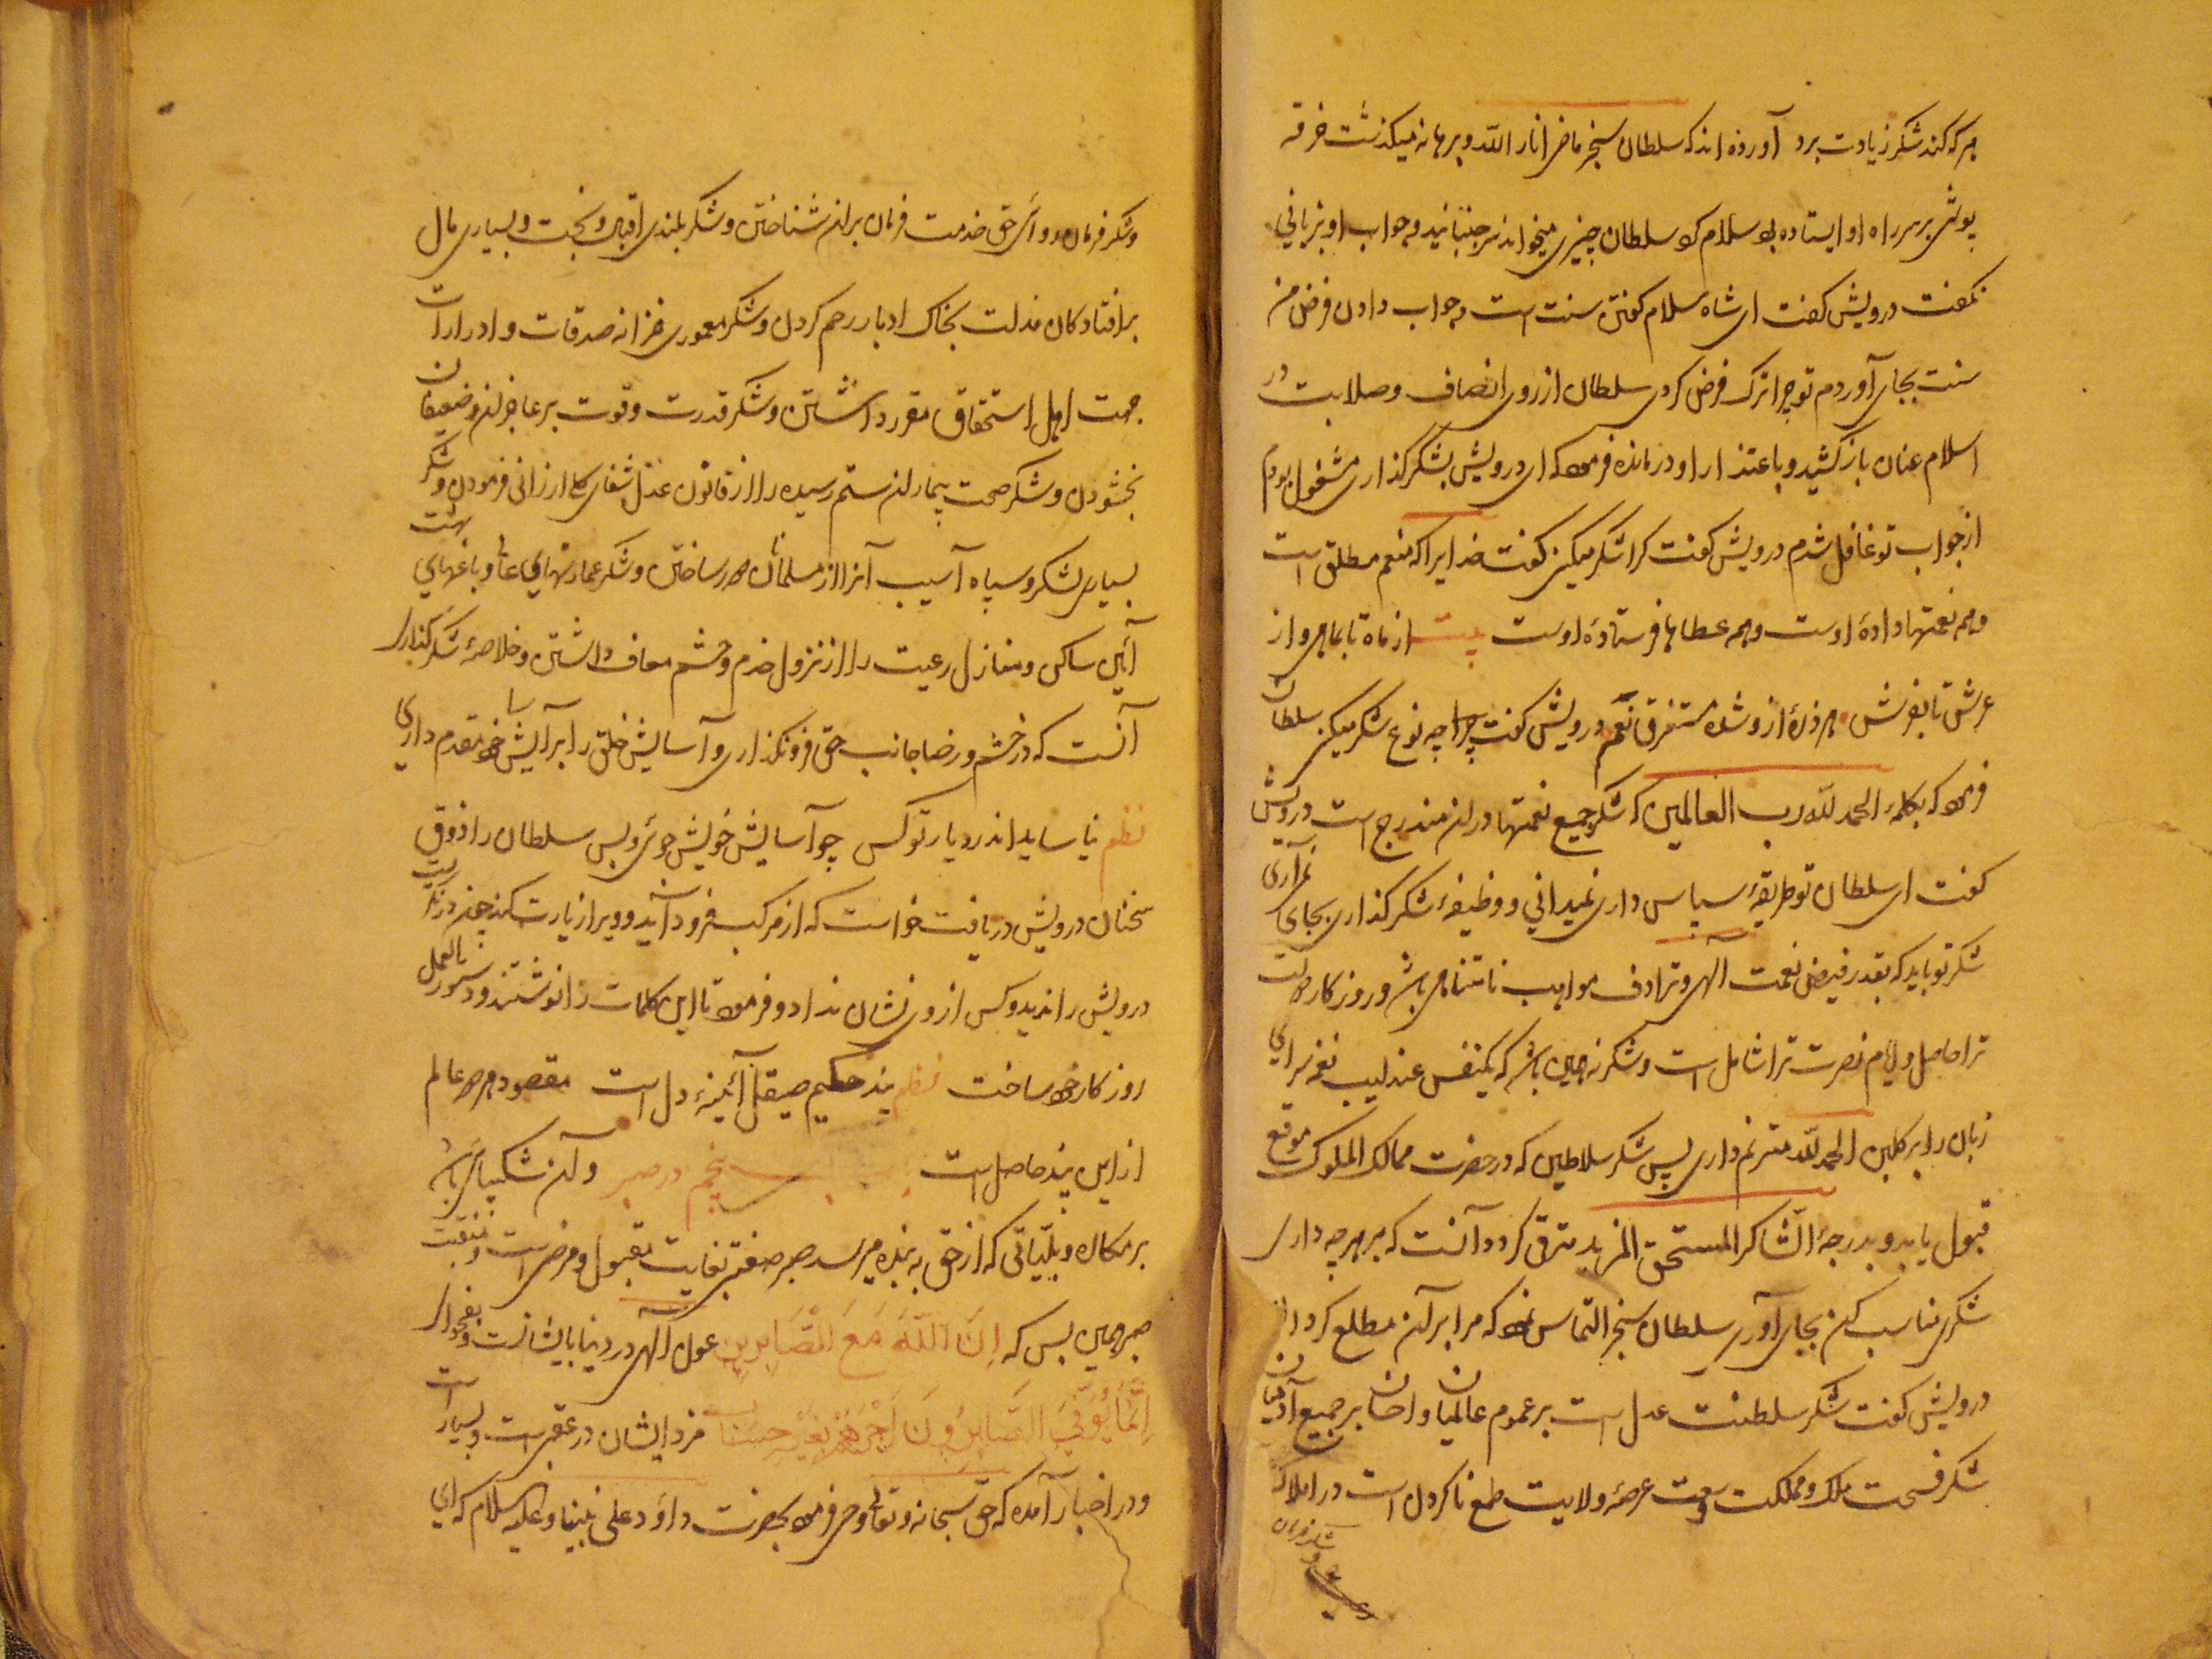 هرکه کند شکر زیادت برد آورده اند که سلطان سنجر ماضی انار الله برهانه میگذشت خرقه
پوشی بر سر راه او ایستاده بود سلام کرد سلطان چیزی میخواند سر جنبانید و جواب او بزبانی
نگفت درویش گفت ای شاه سلام گفتن سنت است و جواب دادن فرض من
سنت بجای آوردم تو چرا ترک فرض کردی سلطان از روی انصاف و صلابت در
اسلام عنان باز کشید و باعتذار او در مانده فرمود که ای درویش بشکر گذاری مشغول بودم
از جواب تو غافل شدم درویش گفت کرا شکر میکنی گفت خدایرا که منعم مطلق است
و همه نعمتها دادهٔ اوست و همه عطاها فرستادهٔ اوست بیت از ماه تا بماهی و از
عرش تا بفرش هر ذرهٔ ازو شده مستغرق نعم درویش گفت چرا چه نوع شکر میکنی سلطان
فرمود که بکلمهٔ الحمد لله رب العالمین که شکر جمیع نعمتها در ان مندرج است درویش
گفت ای سلطان تو طریقهٔ سپاس داری نمیدانی و وظیفهٔ شکر گذاری بجای نمی آری
شکر تو باید که بقدر فیض نعمت الهی و ترادف مواهب نامتناهی باشد و روزکار دولت
ترا حاصل و ایام نصرت ترا شامل است و شکر نه همین باشد که یکنفس عندلیب نغمه سرای
زبان را بر گلبن الحمد لله مترنم داری پس شکر سلاطین که در حضرت ممالک الملوک موقع
قبول یابد و بدرجهٔ الشاکر المستحق المزید مترقی گردد آنست که بر هر چه داری
شکری مناسب آن بجای آوری سلطان سنجر التماس نمود که مرا بر آن مطلع گردان
درویش گفت شکر سلطنت عدل است بر عموم عالمیان و احسان بر جمیع آدمیان
شکر فسحت ملک و مملکت و وسعت عرصهٔ ولایت طمع ناکردن است در املاک
و شکر فرمان روائی حق خدمت فرمان بران شناختن و شکر بلندی اقبال و بخت و بسیاری مال
بر افتادگان مذلت بخاک ادبار رحم کردن و شکر معموری خزانه صدقات و ادرارات
جهت اهل استحقاق مقرر داشتن و شکر قدرت و قوت بر عاجزان و ضعیفان
بخشودن و شکر صحت بیماران ستم رسیده را از قانون عدل شفای کلی ارزانی فرمودن و شکر
بسیاری لشکر و سپاه آسیب آنرا از مسلمانان دور ساختن و شکر عمارتهای عالی و باغهای بهشت
آئین مساکن و منازل رعیت را از نزول خدم و حشم معاف داشتن و خلاصهٔ شکر گذاری
آنست که در خشم و رضا جانب حق فرو نگذاری و آسایش خلق را بر آسایش خود مقدم داری
نظم نیاساید اندر دیار تو کس چو آسایش خویش جوئی و بس سلطان را ذوق
سخنان درویش دریافت خواست که از مرکب فرود آید و ویرا زیارت کند چون در نگریست
درویش را ندید و کس از وی نشان نداد و فرمود تا این کلمات را نوشتند و دستور العمل
روزکار خود ساخت نظم پند حکیم صیقل آئینهٔ دل است مقصود هر دو عالم
از این پند حاصل است باب پنجم در صبر و آن شکیبائی باشد
بر مکاره و بلیاتی که از حق به بنده میرسد صبر صفتی بغایت مقبول و مرضی است و منقبت
صبر همین بس که اِنَّ اللّٰهَ مَعَ الصَّابِرِین عون الهی در دنیا بایشانست و بفحوای
اِنَّمَا یُوَفَّی الصَّابِرُونَ اَجْرَهُمْ بِغَیْرِ حِسَابٍ مزد ایشان در عقبی است و بسیار است
و در اخبار آمده که حق سبحانه و تعالی وحی فرمود بحضرت داؤد علی نبینا و علیه السلام که ای